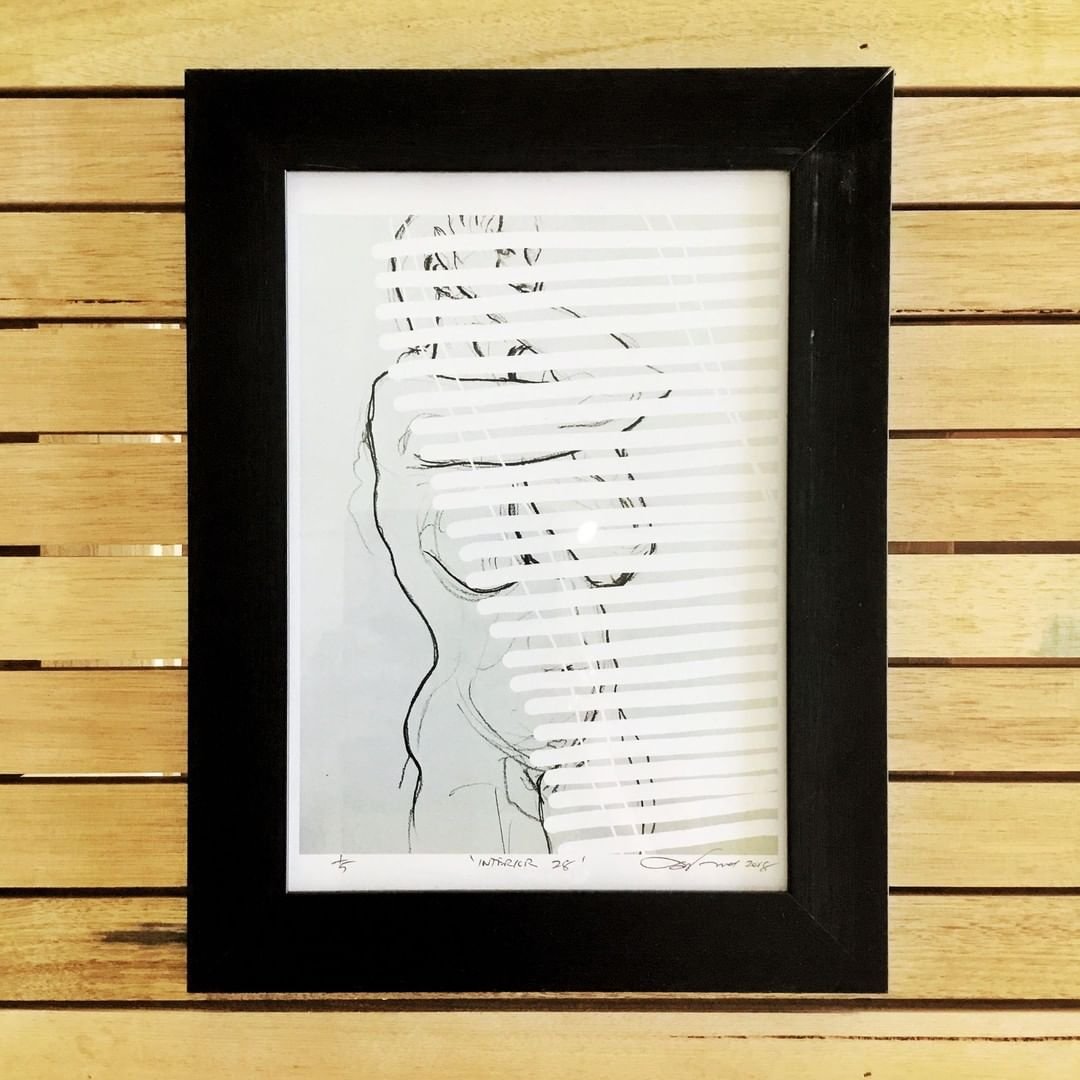 1/5 'INTERIOR 28' 2018